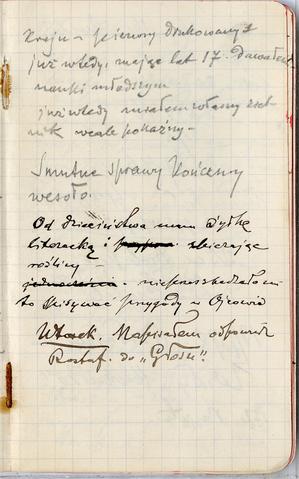 Kraju – pierwszy drukowany
już wtedy, mając lat 17. Dawałem
nauki młodszym
już wtedy miałem własny
nik wcale pokaźny –
Smutne sprawy kończmy
wesoło.
Od dzieciństwa mam żyłkę
literacką i zbierając
rośliny –
nie przeszkadzało mi
to opisywać przygody w Ojcowie
Wtorek. Napisałem odpowiedź
Rostaf. do „Głosu".